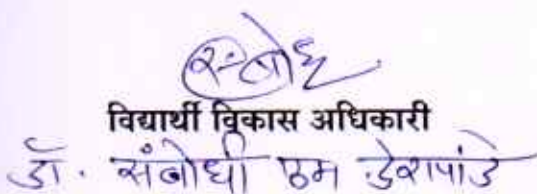 विद्यार्थी विकास अधिकारी
डॉ. संबोधी एम देशपांडे